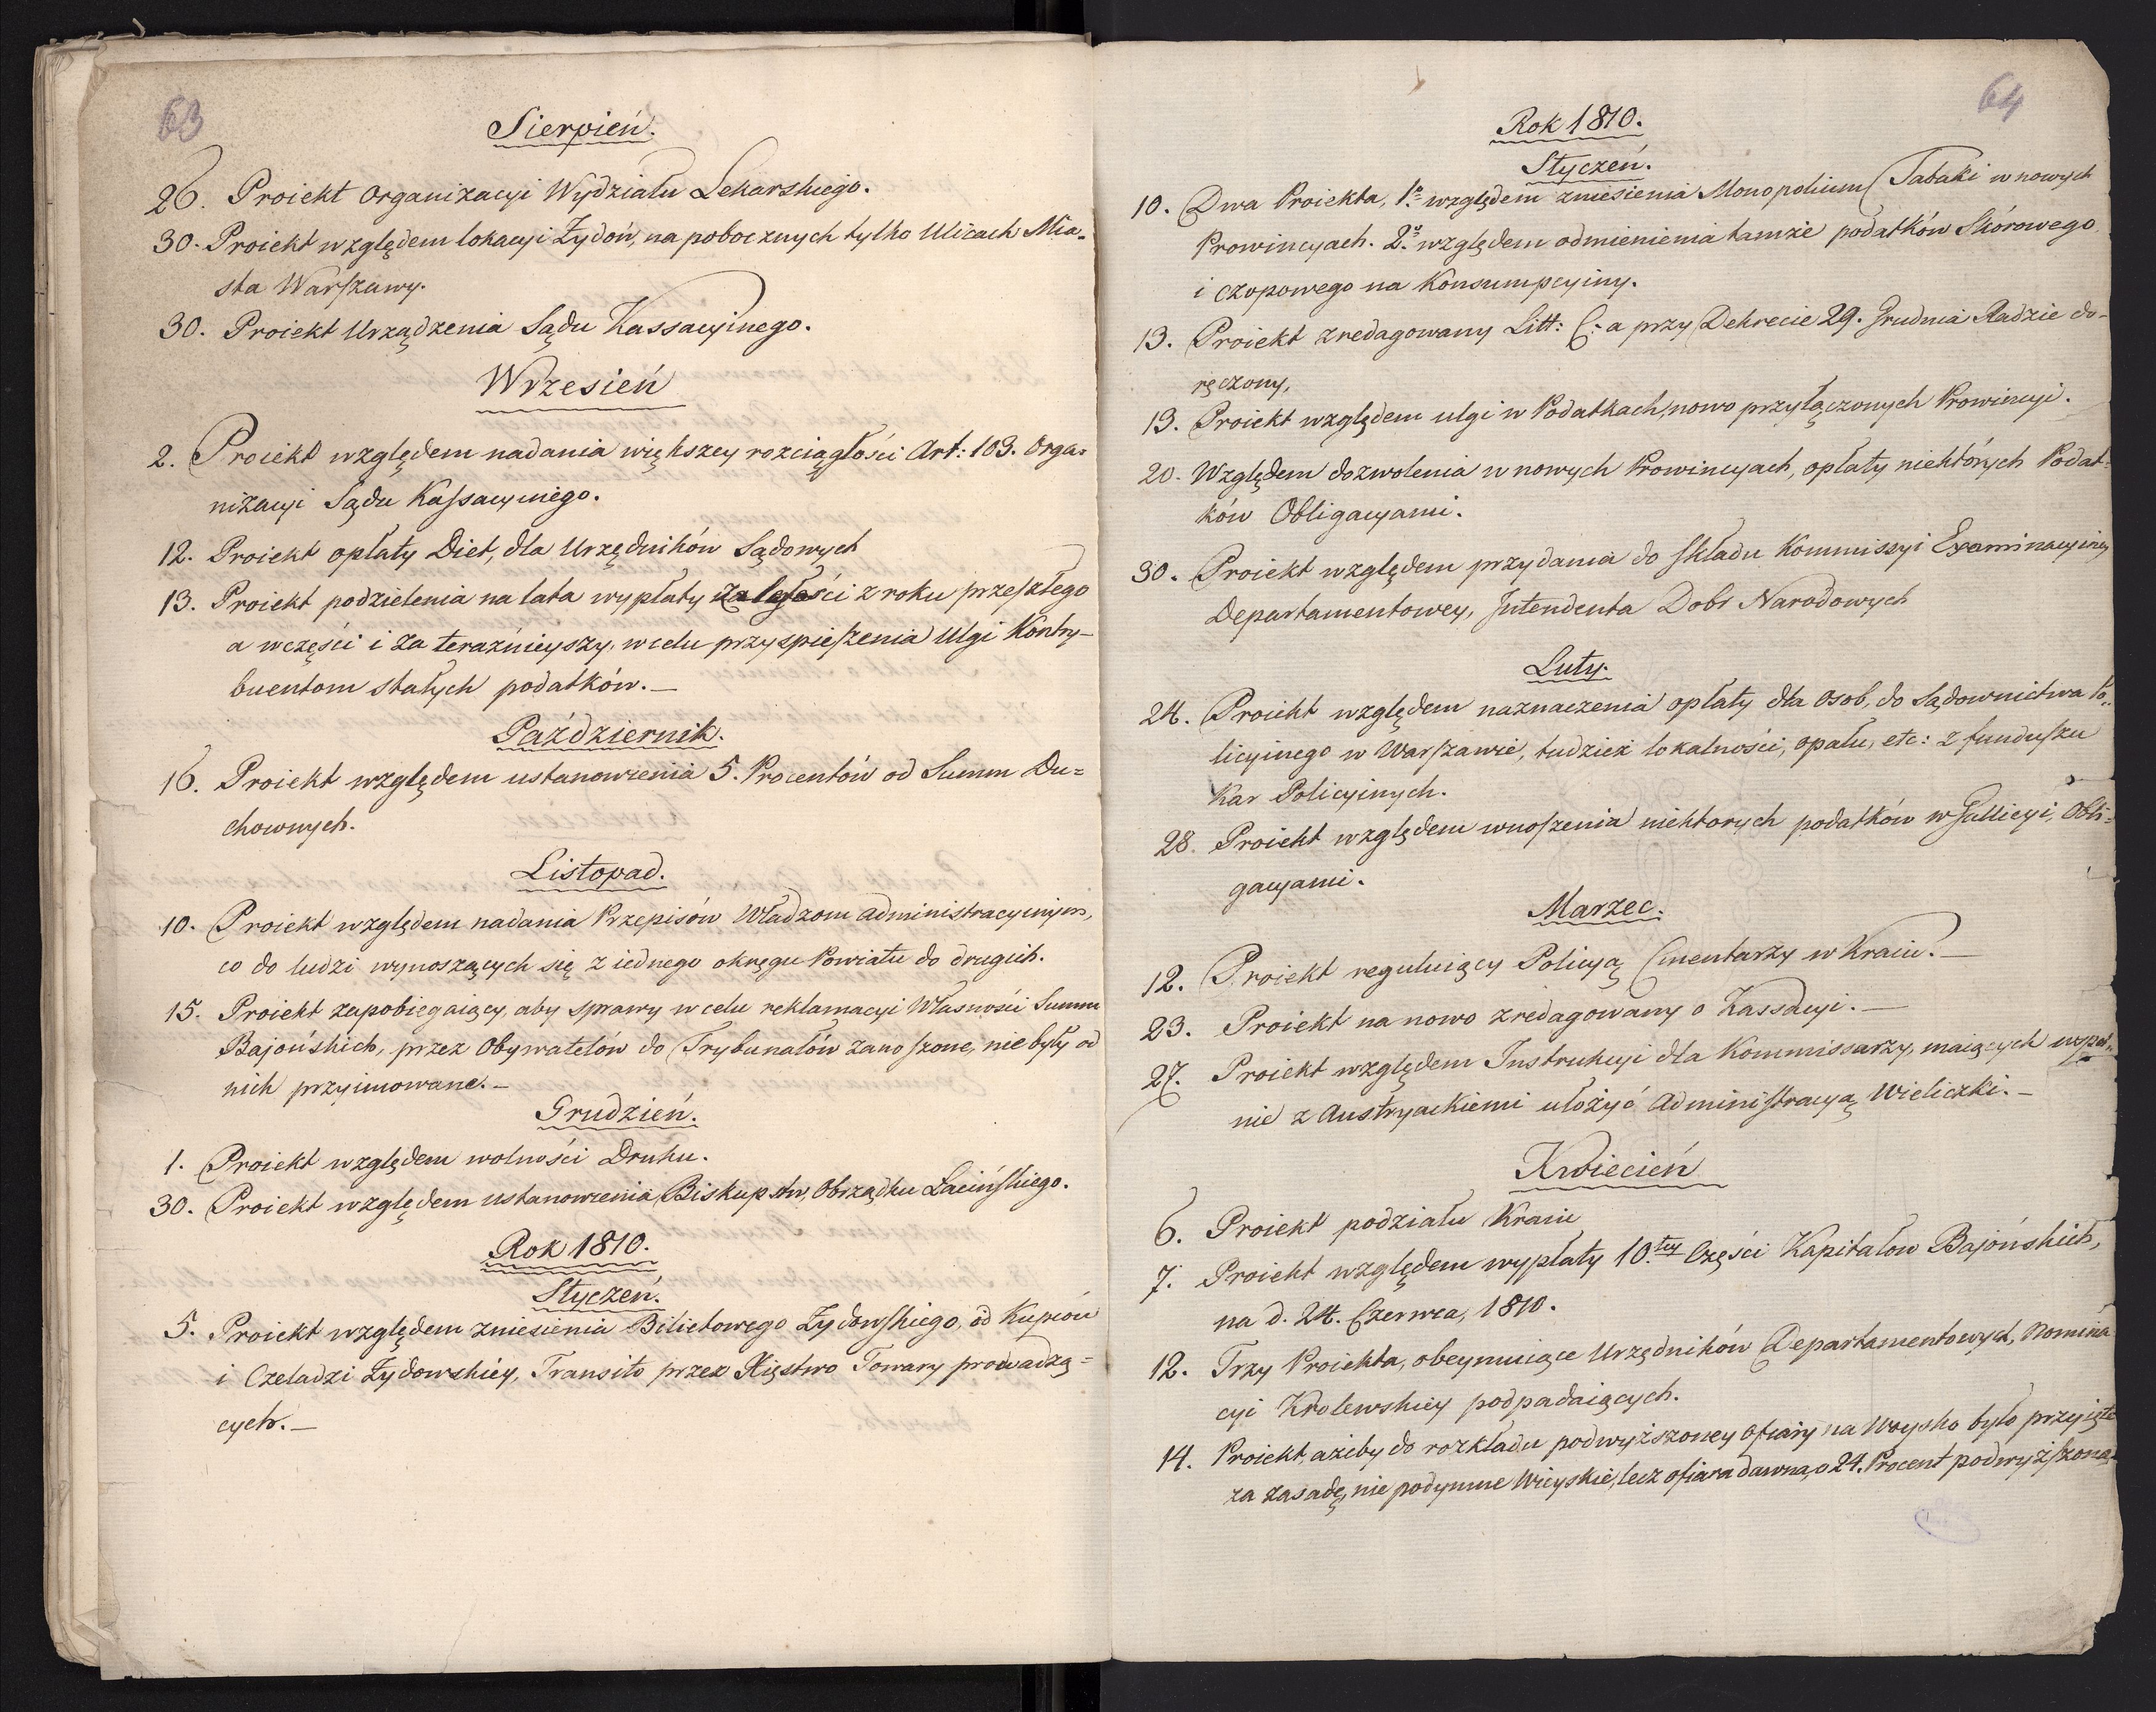 63
Sierpień.
26. Proiekt Organizacyi Wydziału Lekarskiego.
30. Proiekt względem lokacyi Żydów, na pobocznych tylko Ulicach Mia=
sta Warszawy.
30. Proiekt Urządzenia Sądu Kassacyinego.
Wrzesień
2. Proiekt względem nadania większey rozciągłości Art: 103. Orga=
nizacyi Sądu Kassacyinego.
12. Proiekt opłaty Diet, dla Urzędników Sądowych
13. Proiekt podzielenia na lata wypłaty Zaległości z roku przeszłego
a wczęści i za teraźnieyszy, w celu przyspieszenia Ulgi Kontry-
buentom stałych podatków.—
Październik.
16. Proiekt względem ustanowienia 5. Procentów od Summ Du=
chownych.
Listopad.
10. Proiekt względem nadania Przepisów Władzom Administracyinym,
co do ludzi wynoszących się z iednego okręgu Powiatu do drugich.
15. Proiekt zapobiegaiący, aby sprawy w celu reklamacyi Własności Summ
Bajońskich, przez Obywatelów do Trybunałów zanoszone, nie były od
nich przyimowane.—
Grudzień.
1. Proiekt względem wolności Druku.
30. Proiekt względem ustanowienia Biskupstw, Obrządku Łacińskiego.
Rok 1810.
Styczeń.
5. Proiekt względem zniesienia Biletowego Żydowskiego, od Kupców
i Czeladzi Żydowskiéy, Transito przez Xięstwo Towary prowadzą=
cych.—
64
Rok 1810.
Styczeń.
10. Dwa Proiekta, 1o względem zniesienia Monopolium Tabaki w nowych
Prowincyach. 2o względem odmienienia tamże podatków Skórowego
i czopowego na Konsumpcyiny.
13. Proiekt zredagowany Litt: C: a przy Dekrecie 29. Grudnia Radzie do-
ręczony,
13. Proiekt względem ulgi w Podatkach, nowo przyłączonych Prowincyi.
20. Względem dozwolenia w nowych Prowincyach, opłaty niektórych Podat=
ków Obligacyami.
30. Proiekt względem przydania do składu Kommissyi Examinacyiney
Departamentowey, Intendenta Dobr Narodowych
Luty.
24. Proiekt względem naznaczenia opłaty dla Osob, do Sądownictwa Po=
licyinego w Warszawie, tudzież lokalności, opału, etc: z funduszu
Kar Policyinych.
28. Proiekt względem wnoszenia niektorych podatków w Gallicyi, Obli=
gacyami.
Marzec.
12. Proiekt reguluiący Policyą Cmentarzy w Kraiu.—
23. Proiekt na nowo zredagowany o Kassacyi.—
27. Proiekt względem Instrukcyi dla Kommissarzy, maiących wspol=
nie z Austryackiemi ułożyć Administracyą Wieliczki.—
Kwiecień
6. Proiekt podziału Kraiu
7. Proiekt względem wypłaty 10.tey Części Kapitałow Bajońskich,
na d. 24. Czerwca, 1810.
12. Trzy Proiekta, obeymuiące Urzędników Departamentowych, Nomina
cyi Krolewskiey podpadaiących.
14. Proiekt, ażeby do rozkładu podwyższoney Ofiary na Woysko było przyięte
za zasadę, nie podymne Wieyskie, lecz ofiara dawna, o 24. Procent podwyższona.